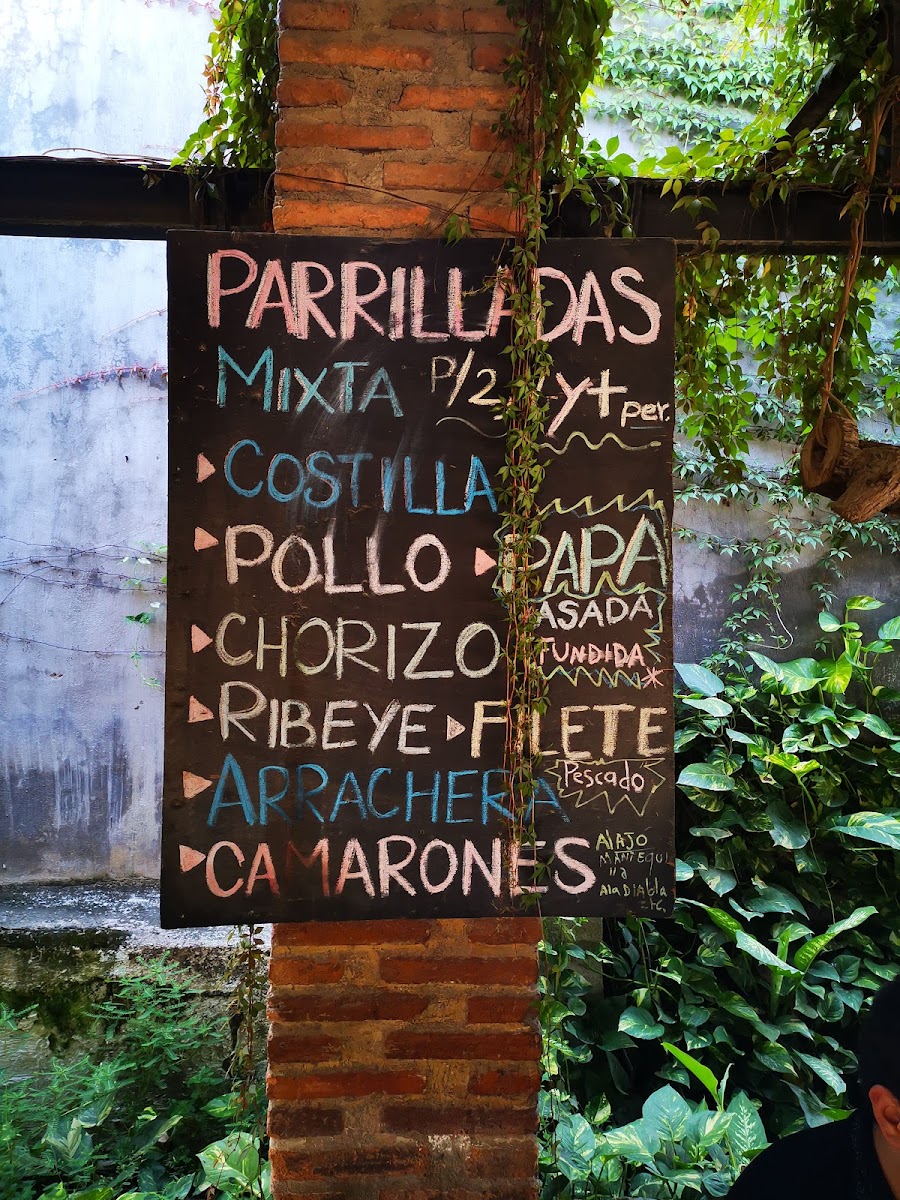 PARRILLADAS
MIXTA P/2 y + per.
COSTILLA
POLLO
PAPA
ASADA
FUNDIDA
CHORIZO
RIBEYE
FILETE
Pescado
ARRACHERA
CAMARONES
AlAJO
MANTEQUI
lla
Ala DIAbla
etc.